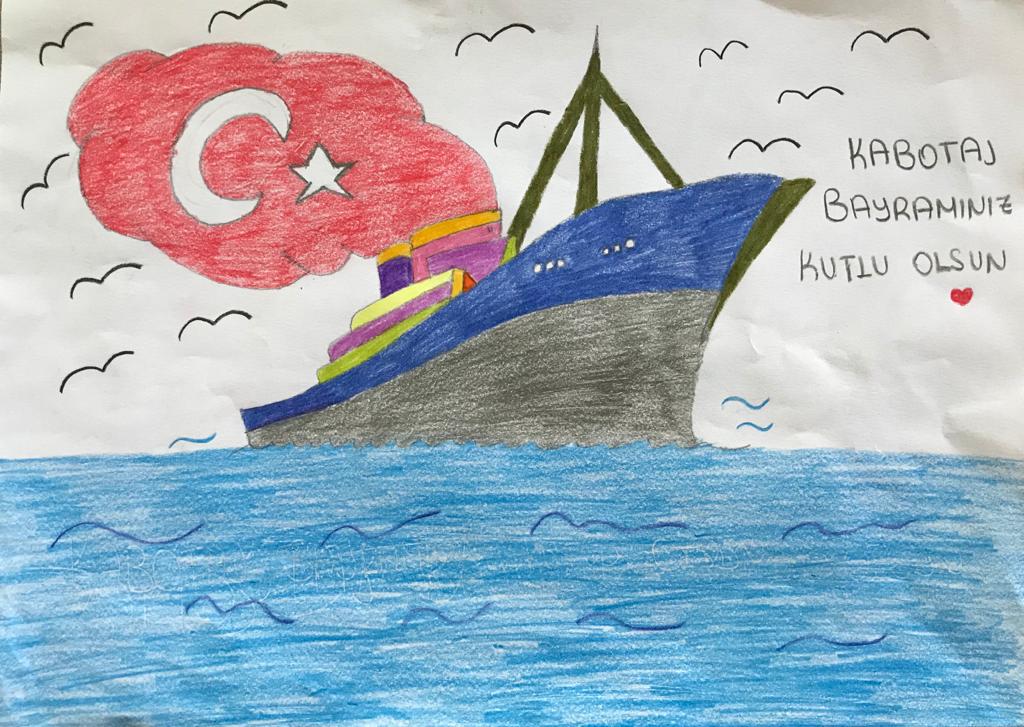 KABOTAJ
BAYRAMINIZ
KUTLU OLSUN